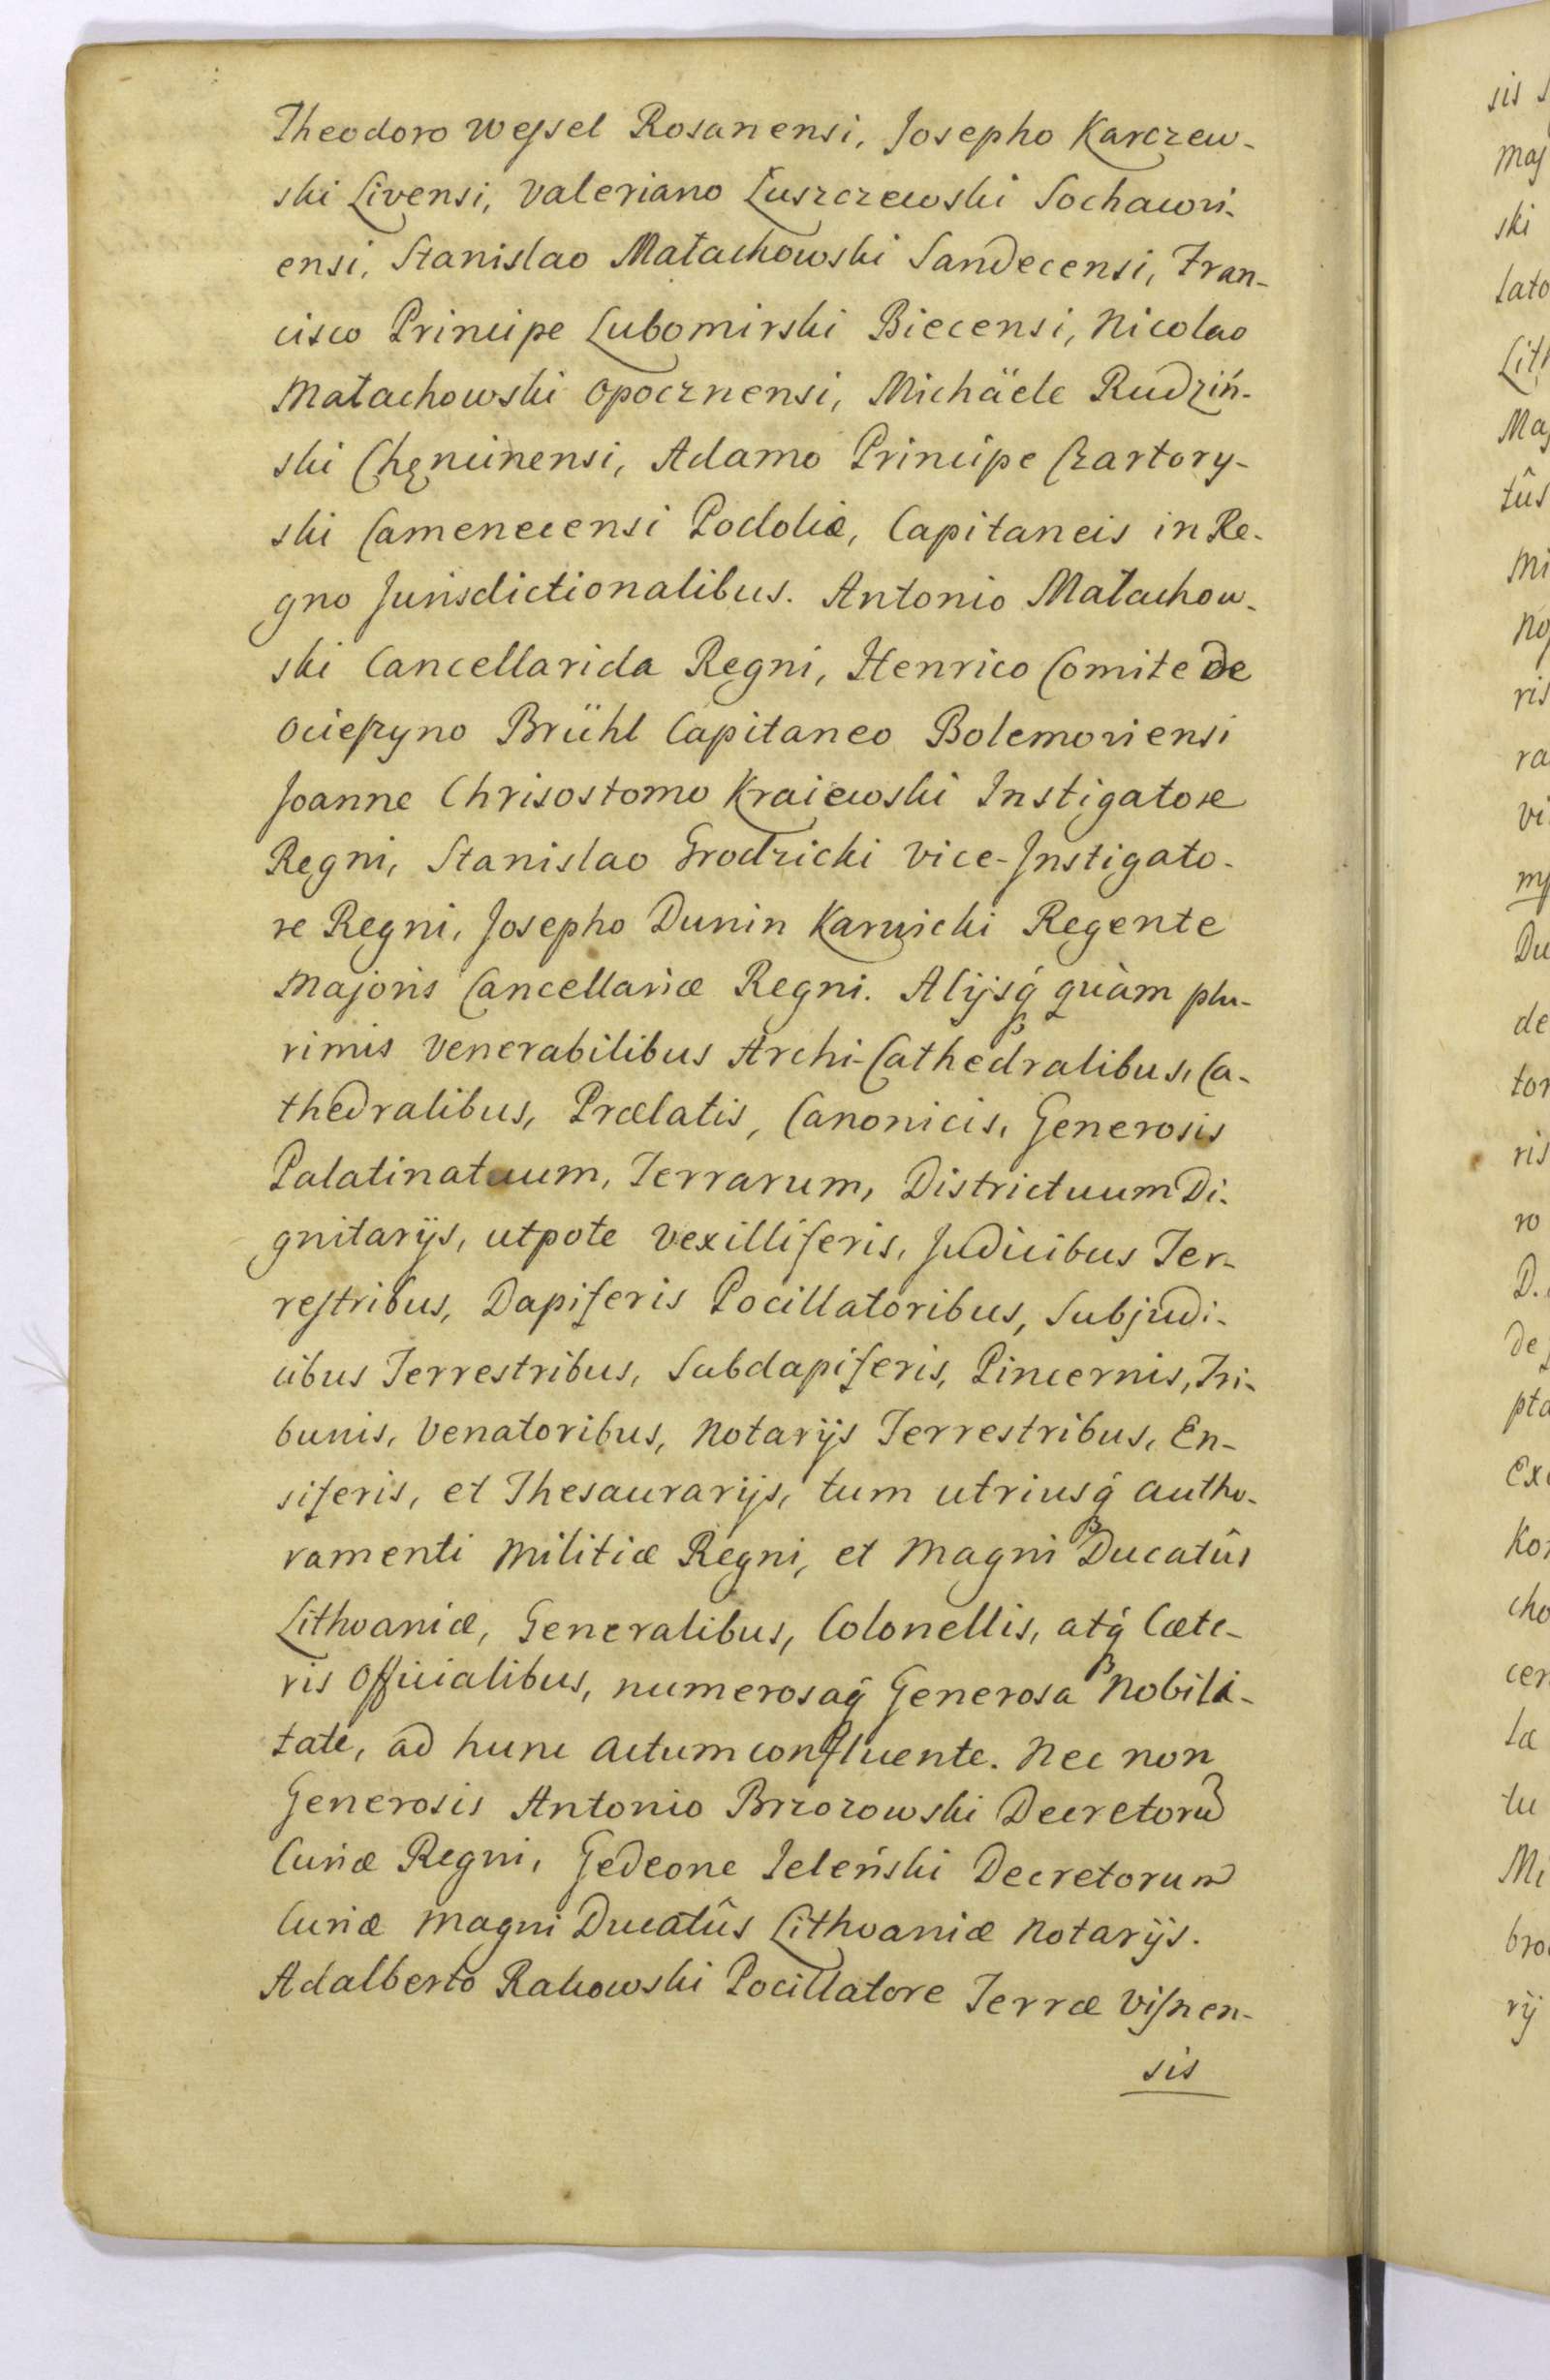 Theodoro Wessel Rosanensi, Josepho Karczew-
ski Livensi, Valeriano Łuszczewski Sochawi-
ensi, Stanislao Małachowski Sandecensi, Fran-
cisco Principe Lubomirski Biecensi, Nicolao
Małachowski Opocznensi, Michäele Rudziń-
ski Chęncinensi, Adamo Principe Czartory-
ski Camenecensi Podoliæ, Capitaneis in Re-
gno Jurisdictionalibus. Antonio Małachow-
ski Cancellarida Regni, Henrico Comite de
Ocieszyno Brühl Capitaneo Bolemoviensi
Joanne Chrisostomo Kraiewski Instigatore
Regni, Stanislao Grodzicki Vice-Instigato-
re Regni, Josepho Dunin Karwicki Regente
Majoris Cancellariæ Regni. Alijsq́ꝫ quàm plu-
rimis Venerabilibus Archi-Cathedralibus, Ca-
thedralibus, Prælatis, Canonicis, Generosis
Palatinatuum, Terrarum, Districtuum Di-
gnitarijs, utpote Vexilliferis, Judicibus Ter-
restribus, Dapiferis Pocillatoribus, Subjudi-
cibus Terrestribus, Subdapiferis, Pincernis, Tri-
bunis, Venatoribus, Notarijs Terrestribus, En-
siferis, et Thesaurarijs, tum utriusq́ꝫ autho-
ramenti Militiæ Regni, et Magni Ducatûs
Lithvaniæ, Generalibus, Colonellis, atq́ꝫ Cæte-
ris Officialibus, numerosaq́ꝫ Generosa Nobili-
tate, ad hunc actum confluente. Nec non
Generosis Antonio Brzozowski Decretorũ
Curiæ Regni, Gedeone Jeleński Decretorum
Curiæ Magni Ducatûs Lithvaniæ Notarijs.
Adalberto Rakowski Pocillatore Terræ Visnen-
sis